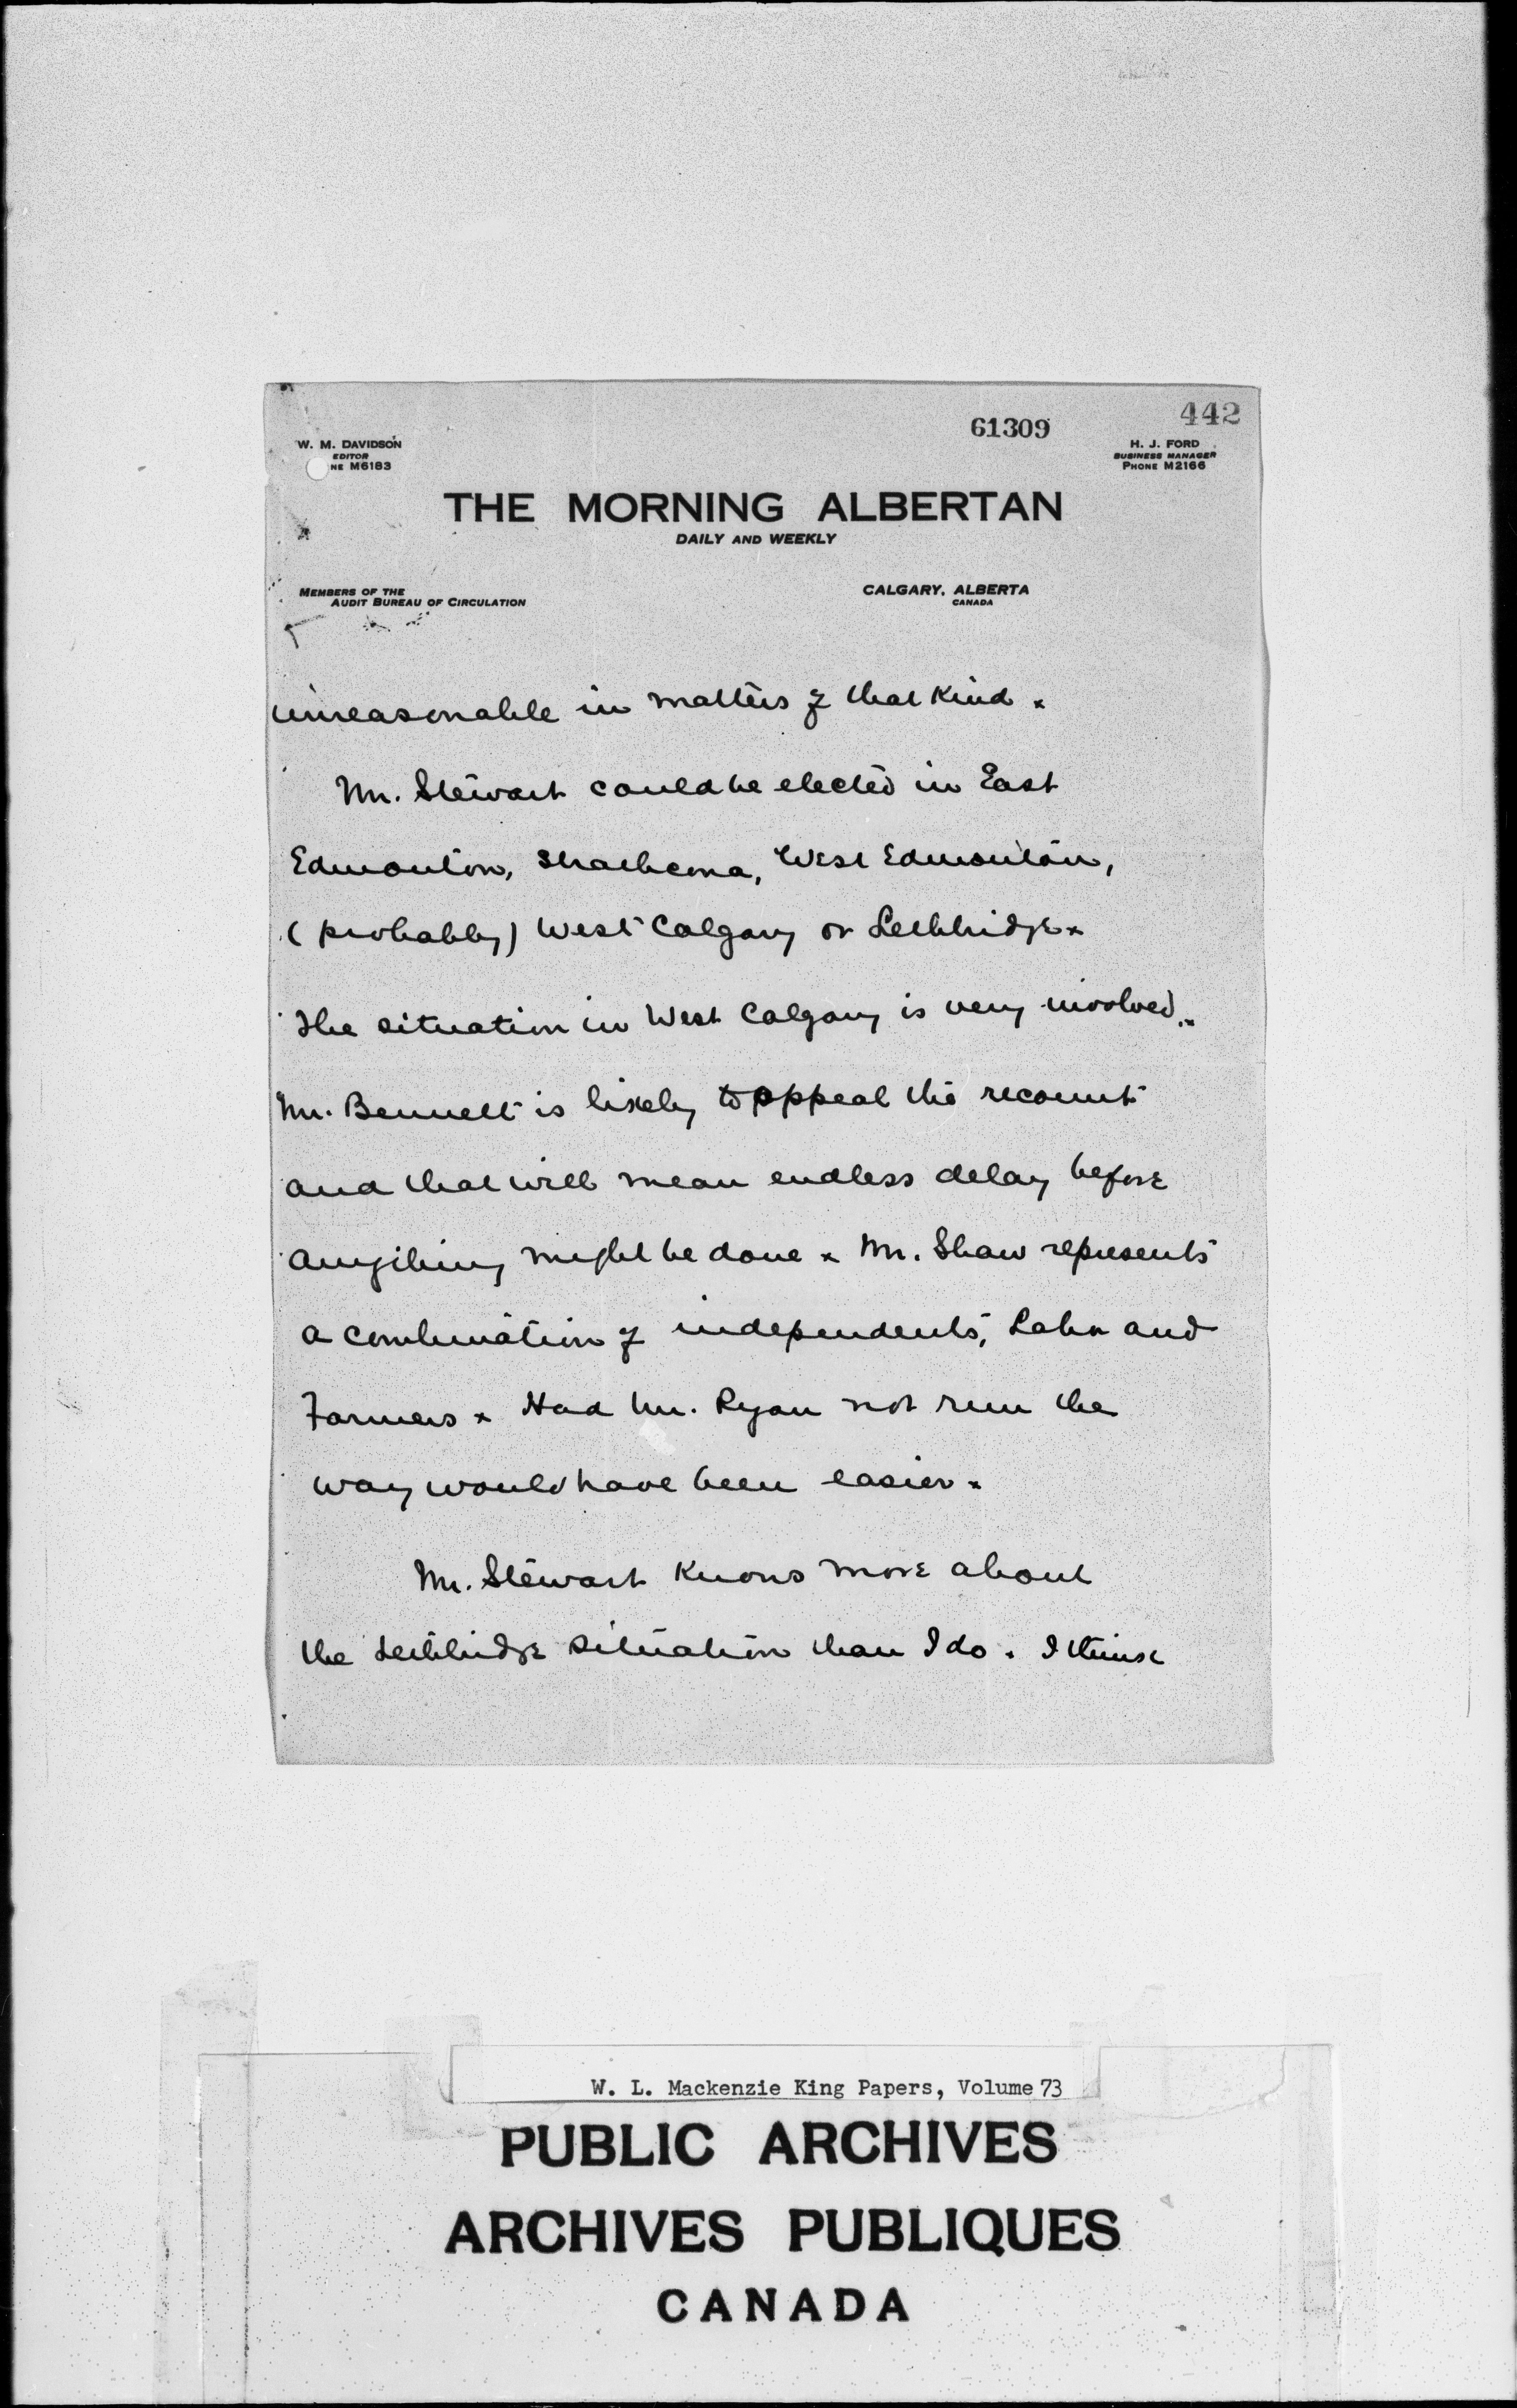 442
61309
W. M. DAVIDSON
EDITOR
NE M6183
H. J. FORD
BUSINESS MANAGER
PHONE M2166
THE MORNING ALBERTAN
DAILY AND WEEKLY
MEMBERS OF THE
AUDIT BUREAU OF CIRCULATION
CALGARY, ALBERTA
CANADA
unreasonable in matters of that kind x
Mr. Stewart could be elected in East
Edmonton, Strathcona, West Edmonton,
(probably) West Calgary or Lethbridge x
The situation in West Calgary is very involved x
Mr. Bennett is likely to appeal the recount
and that will mean endless delay before
anything might be done x Mr. Shaw represents
a combination of independents, Labor and
Farmers x Had Mr. Ryan not run the
way would have been easier x
Mr. Stewart knows more about
the Lethbridge situation than I do . I think
W. L. Mackenzie King Papers, Volume 73
PUBLIC ARCHIVES
ARCHIVES PUBLIQUES
CANADA